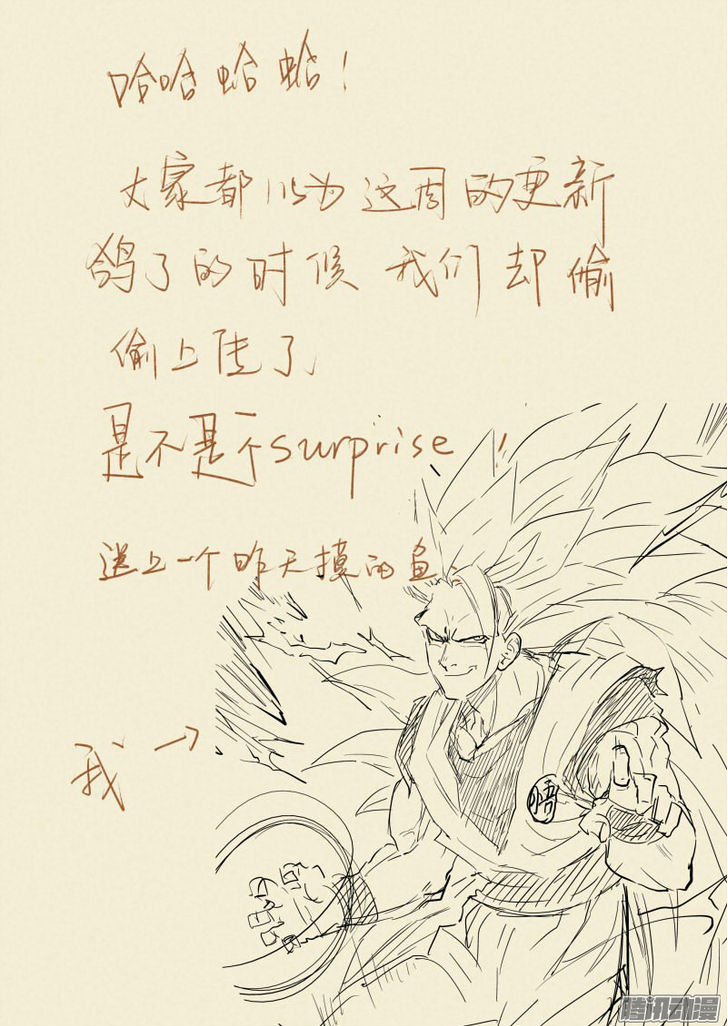 哈哈蛤蛤!
大家都以为这周的更新
鸽了的时候 我们却偷
偷上传了
是不是个surprise!
送上一个昨天摸的鱼、
我→
悟
腾讯动漫